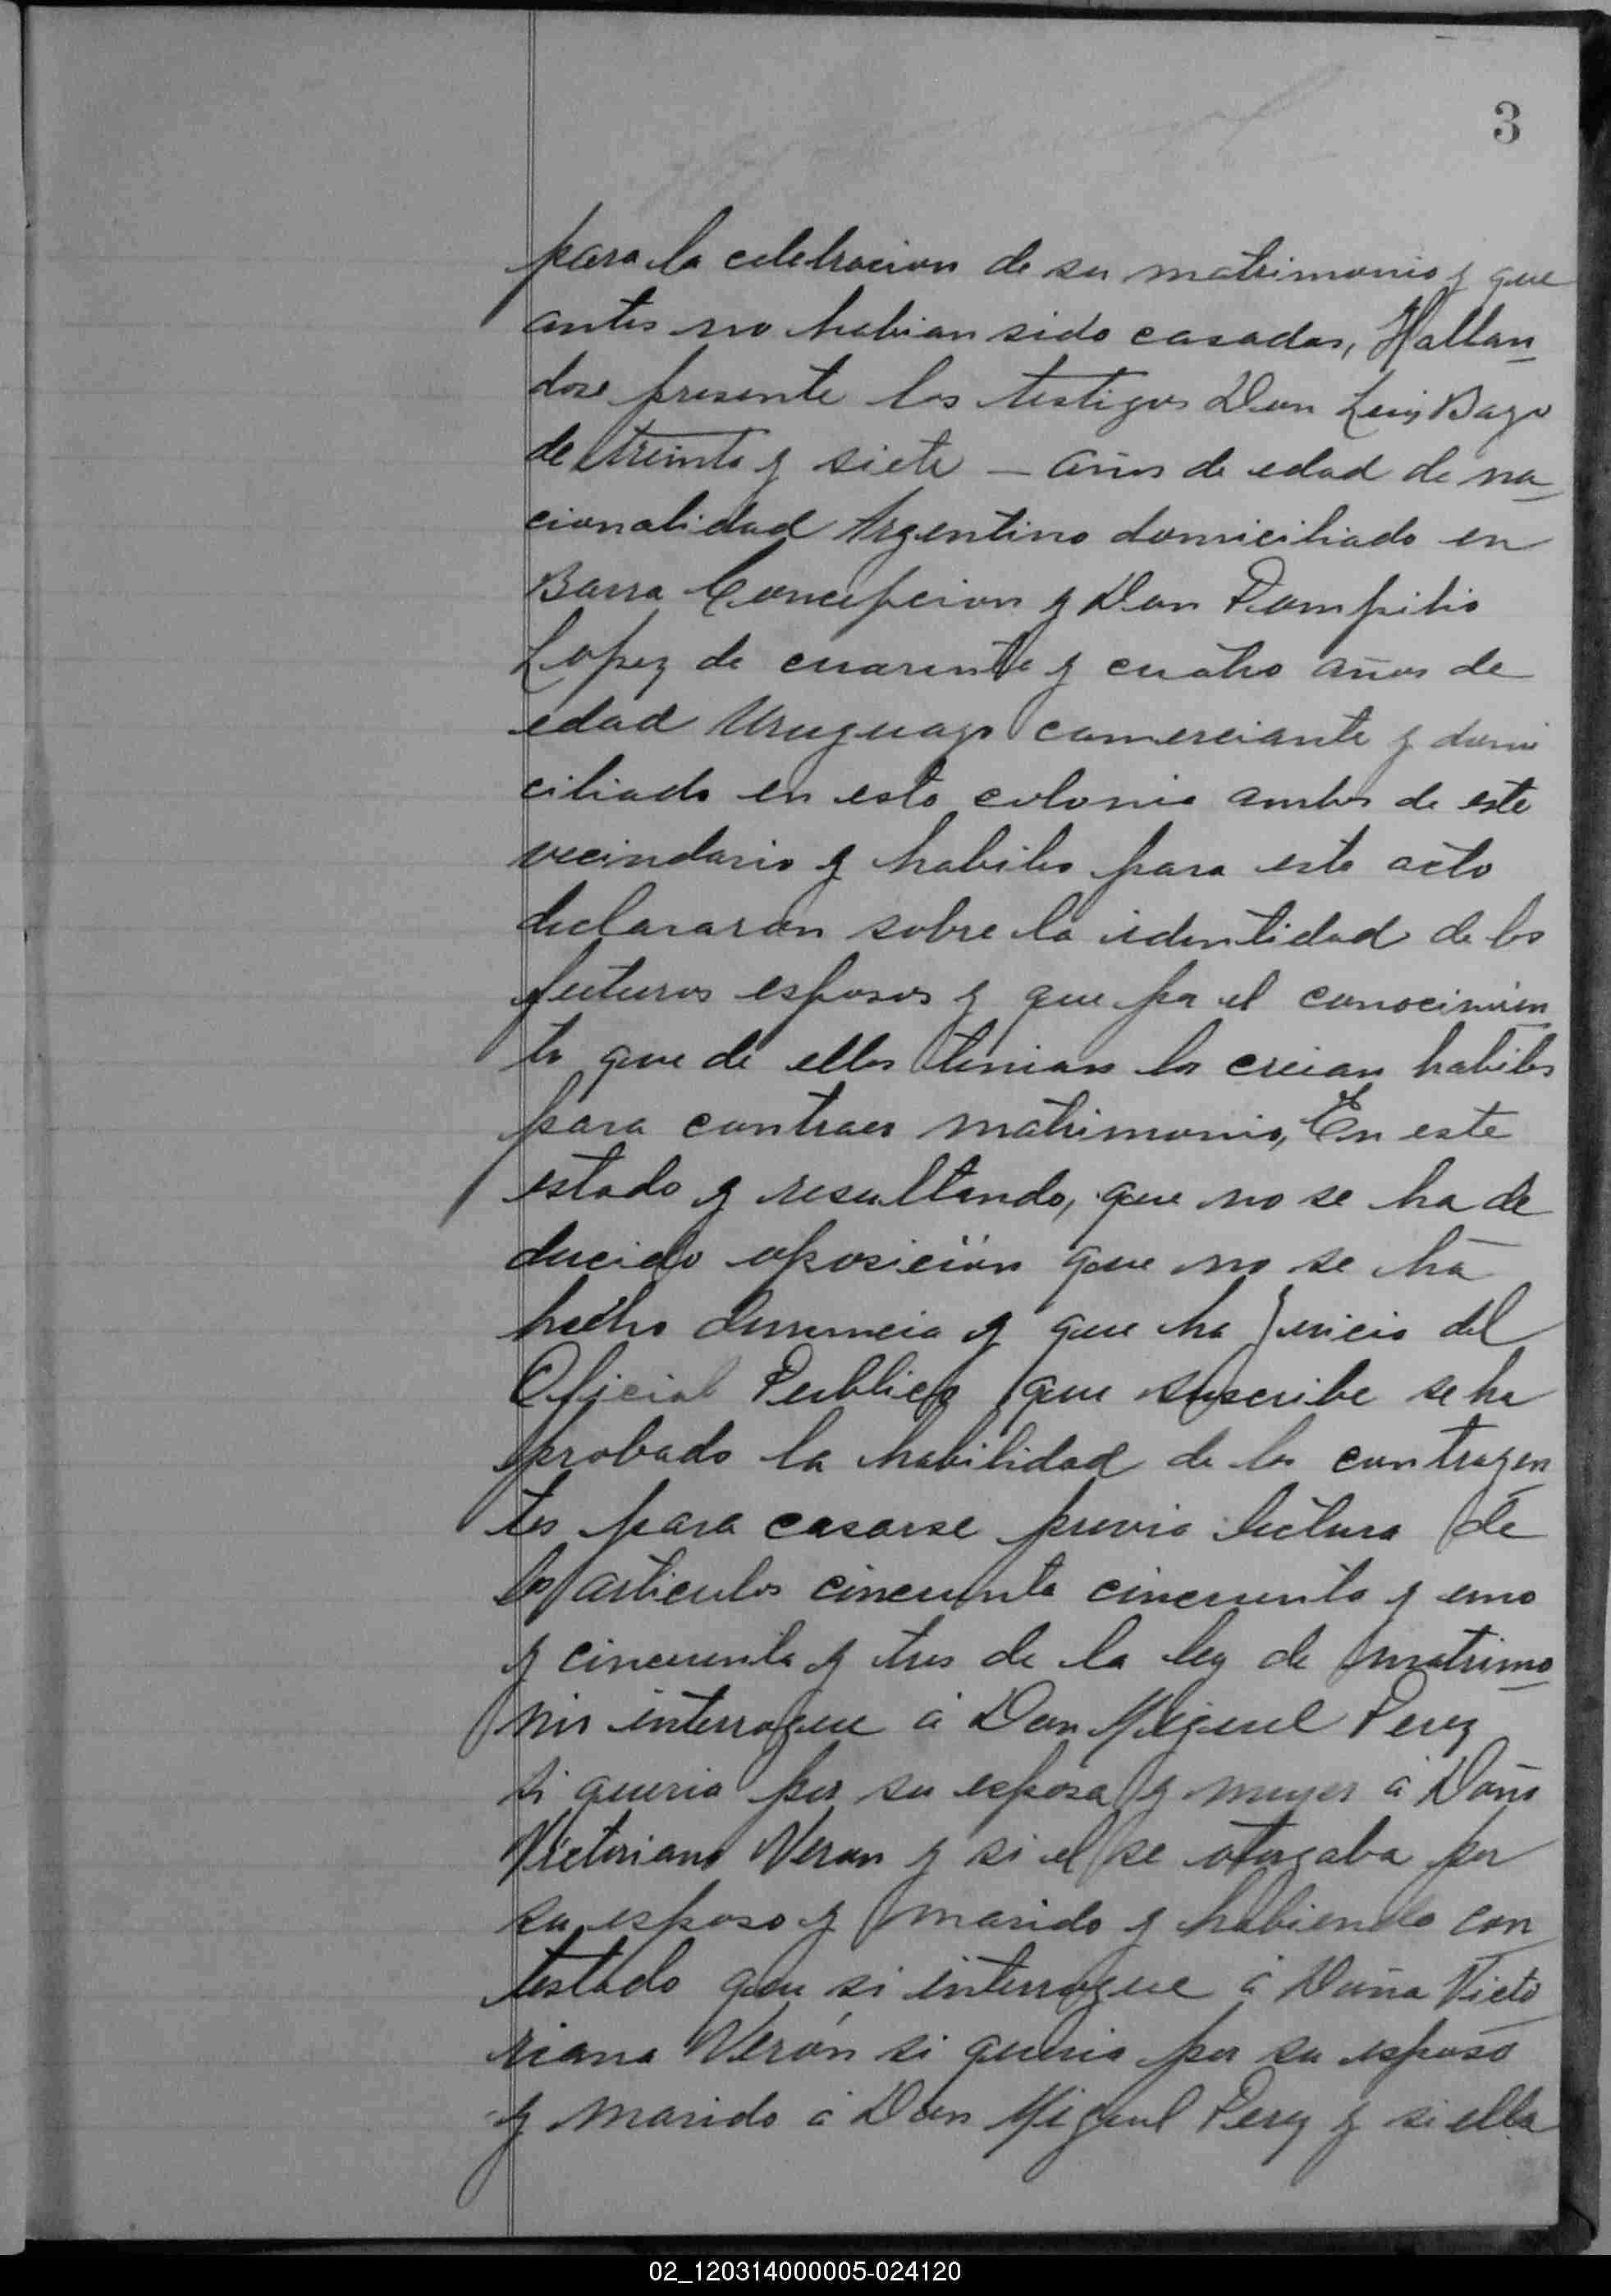 3
para la celebracion de su matrimonio y que
antes no habian sido casados, Hallan
dose presente los testigos Don Luis Bago
de treinta y siete — años de edad de na
cionalidad Argentino domiciliado en
Barra Concepcion y Don Pompilio
Lopez de cuarenta y cuatro años de
edad Uruguayo comerciante y domi
ciliado en esta colonia ambos de este
vecindario y habiles para este acto
declararon sobre la identidad de los
futuros esposos y que por el conocimien
to que de ellos tenian los creian habiles
para contraer matrimonio, En este
estado y resultando, que no se ha de
ducido oposición que no se ha
hecho denuncia y que ha juicio del
Oficial Publico que suscribe se ha
probado la habilidad de los contrayen
tes para casarse previa lectura de
los articulos cincuenta cincuenta y uno
y cincuenta y tres de la ley de matrimo
nio interrogue á Don Miguel Perez
si queria por su esposa y muger á Doña
Victoriana Veron y si el se otorgaba por
su esposo y marido y habiendo con
testado que si interrogue á Doña Victo
riana Verón si queria por su esposo
y marido á Don Miguel Perez y si ella
02_120314000005-024120